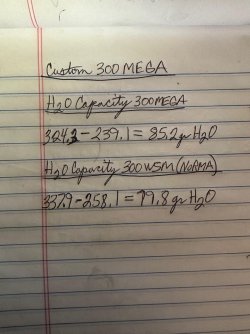 Custom 300 MEGA
H2O Capacity 300 MEGA
324.3 - 239.1 = 85.2 gr H2O
H2O Capacity 300 WSM (NORMA)
337.9 - 258.1 = 79.8 gr H2O